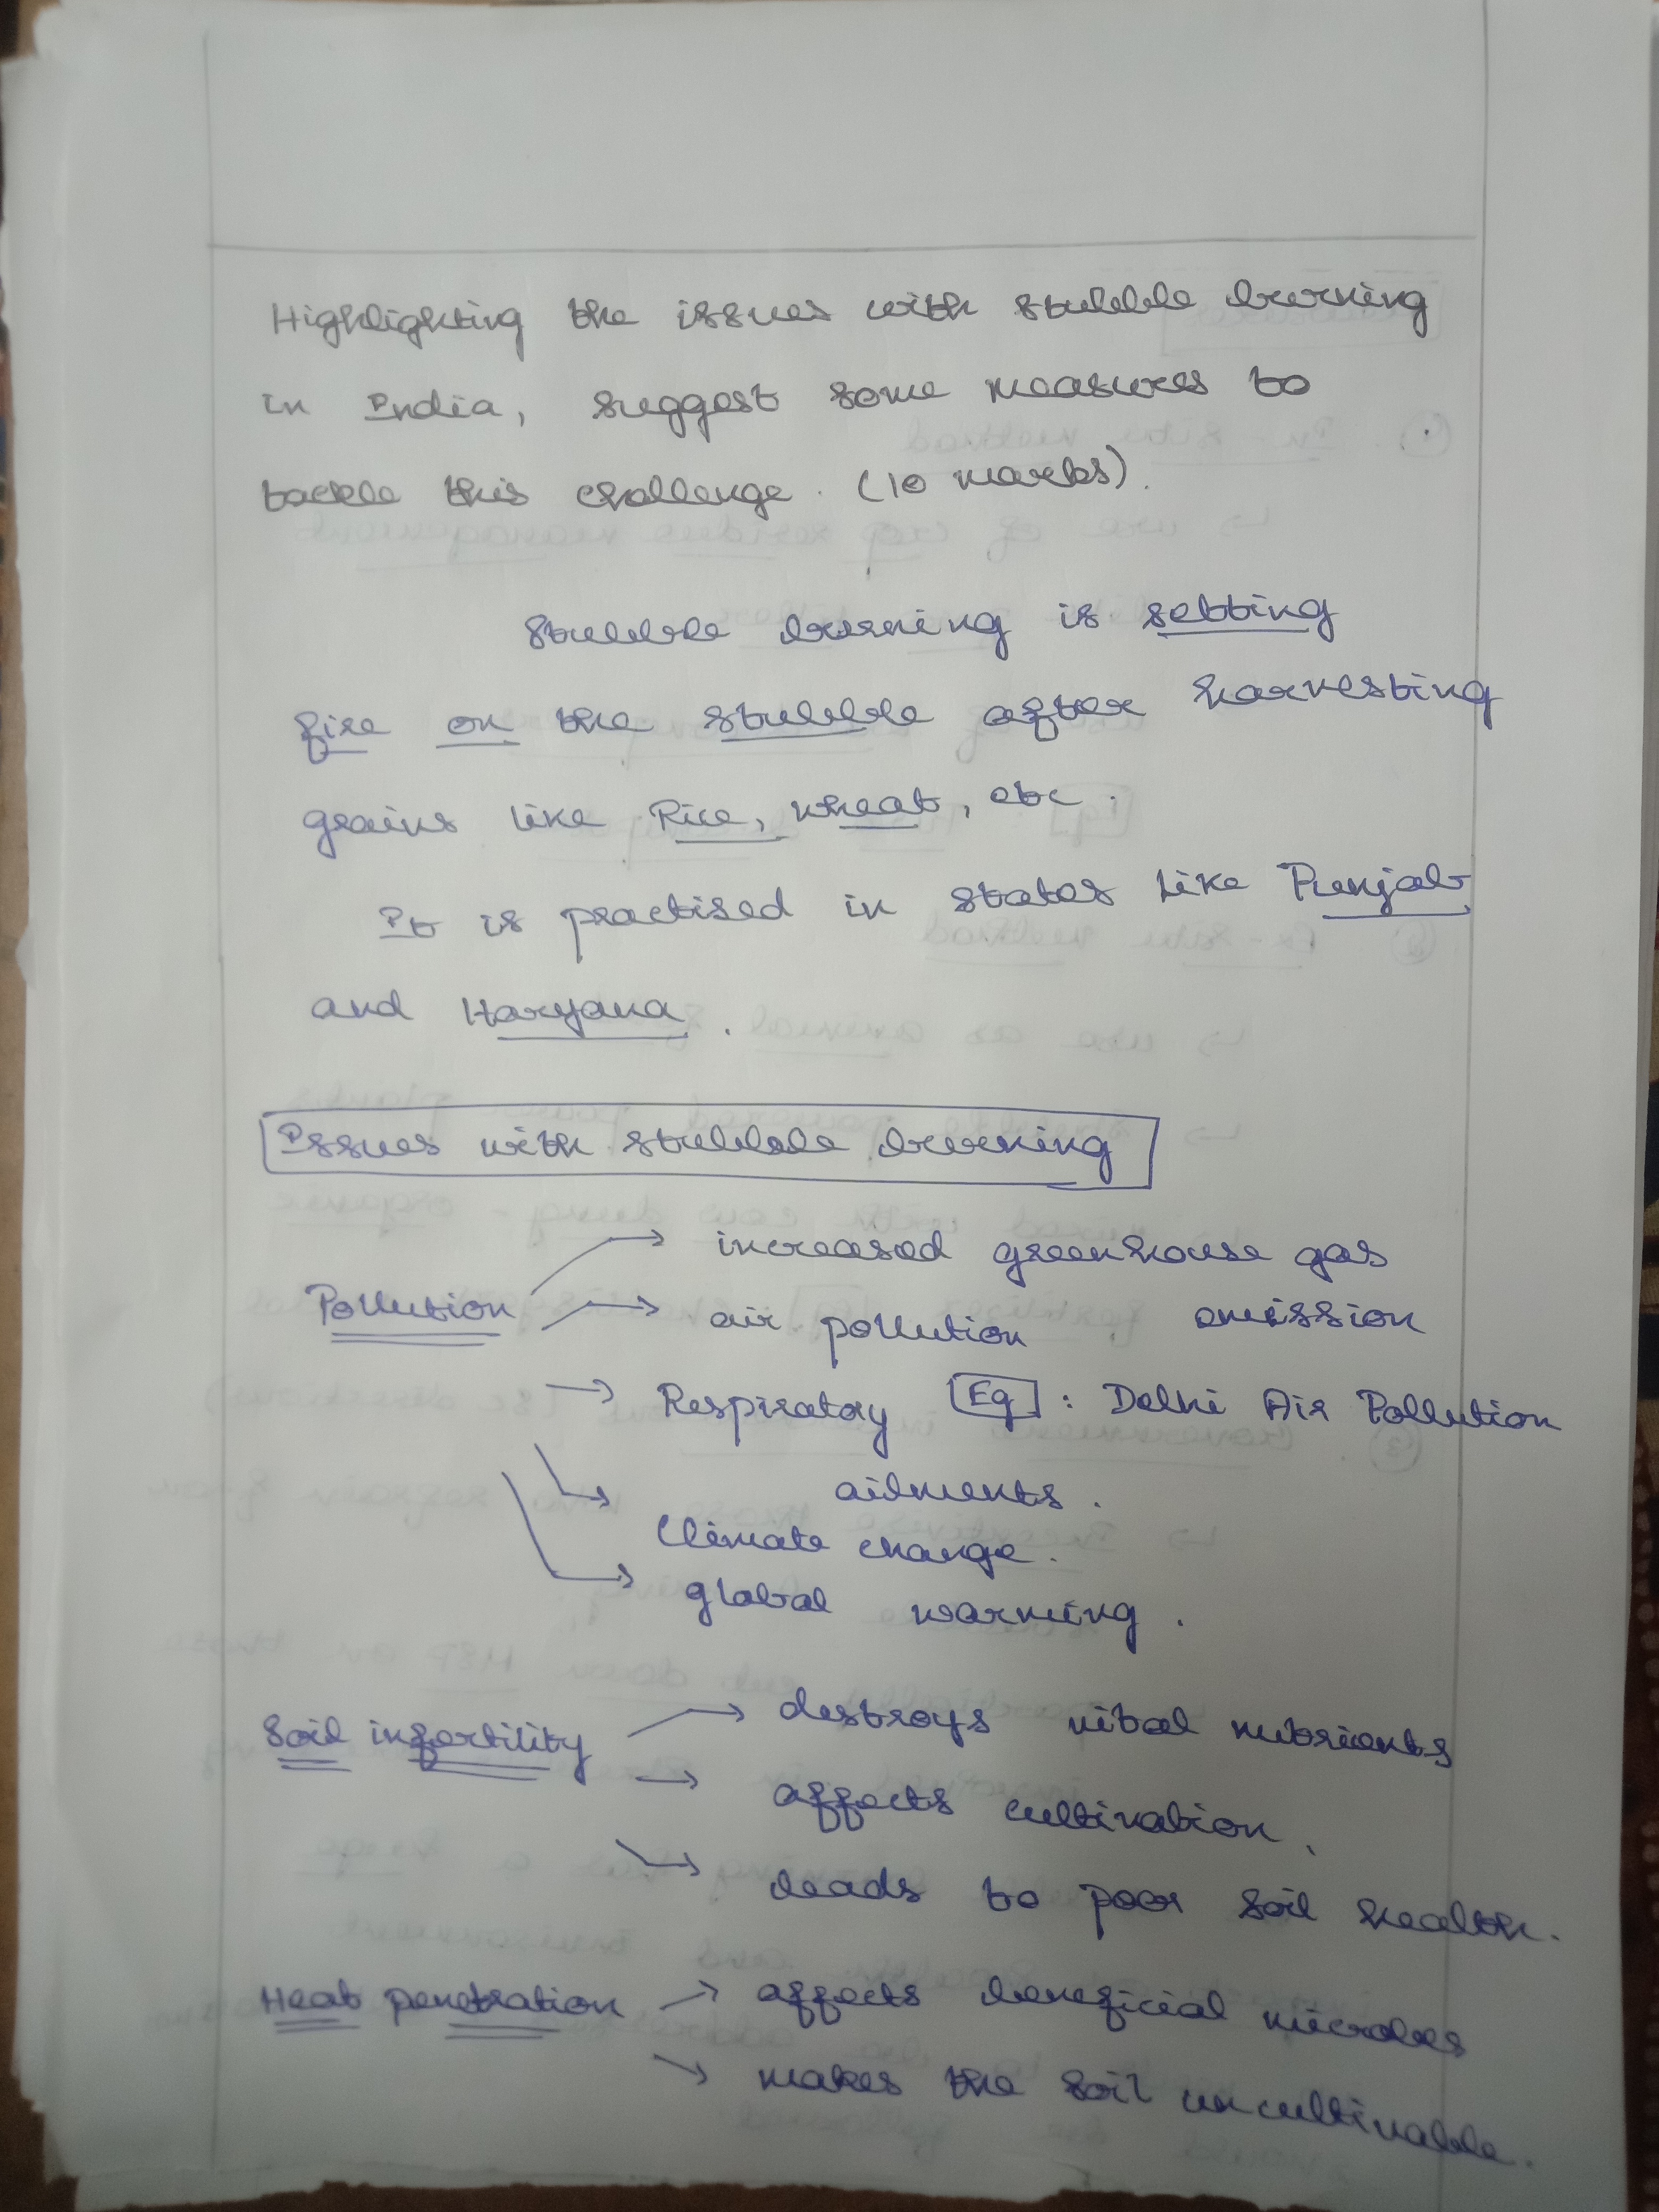 Highlighting the issues with stubble burning
in India, suggest some measures to
tackle this challenge. (10 marks).
Stubble burning is setting
fire on the stubble after harvesting
grains like Rice, wheat, etc.
It is practised in states like Punjab
and Haryana.
Issues with stubble burning
Pollution → increased greenhouse gas
emission
→ air pollution
→ Respiratory [Eg] : Delhi Air Pollution
ailments.
→ Climate change.
→ global warming.
Soil infertility → destroys vital nutrients
→ affects cultivation.
→ leads to poor soil health.
Heat penetration → affects beneficial microbes
→ makes the soil uncultivable.